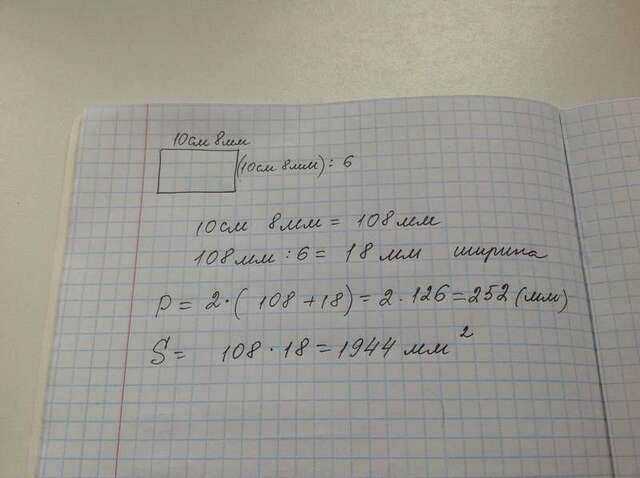 10см 8мм
(10см 8мм) : 6
10см 8мм = 108 мм
108мм : 6 = 18 мм ширина
P = 2·( 108 + 18) = 2 · 126 = 252 (мм)
S = 108 · 18 = 1944 мм²